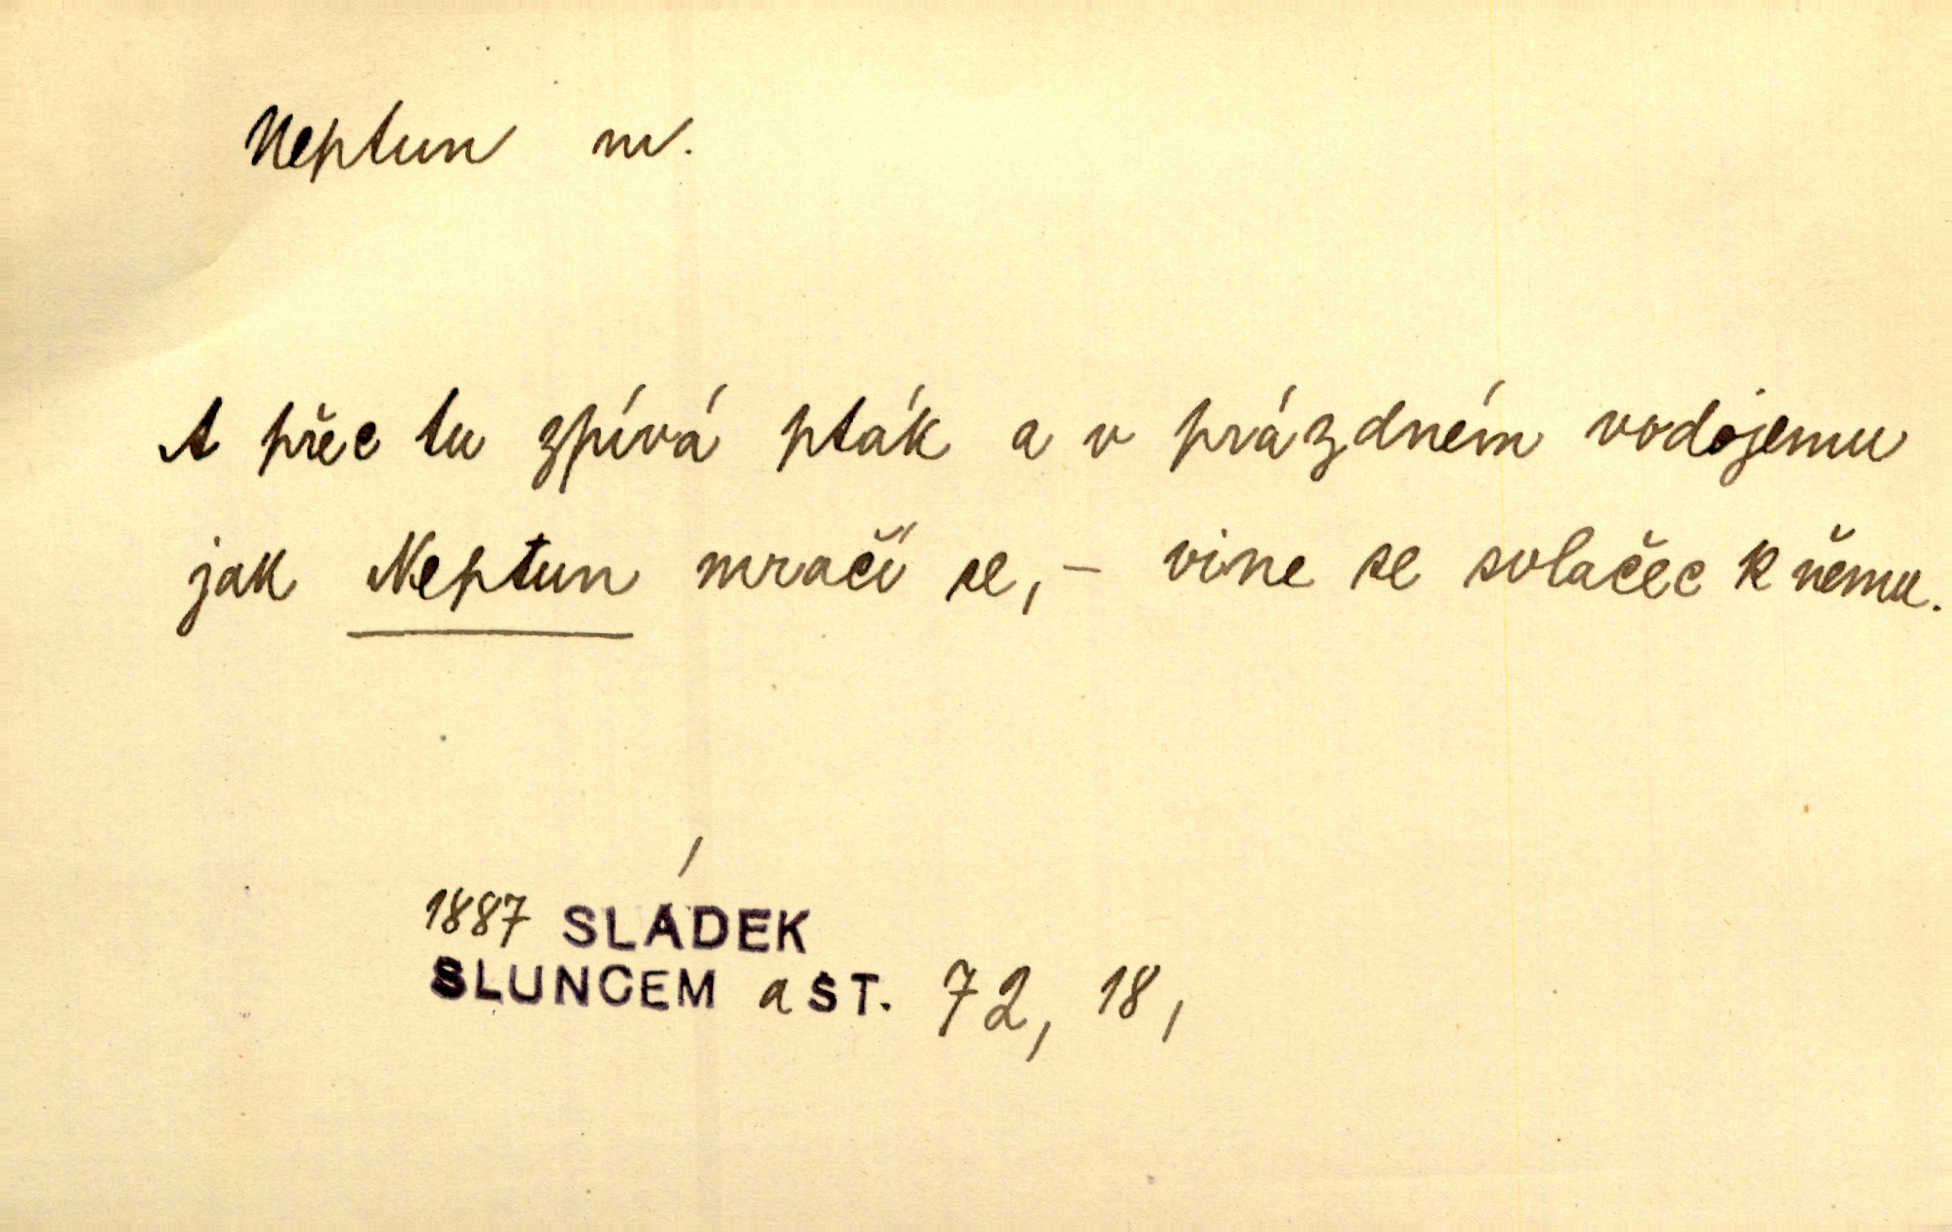 Neptun m.
A přec tu zpívá pták a v prázdném vodojemu
jak Neptun mračí se, – vine se svlačec k němu.
1887 SLÁDEK
SLUNCEM a ST. 72, 18,